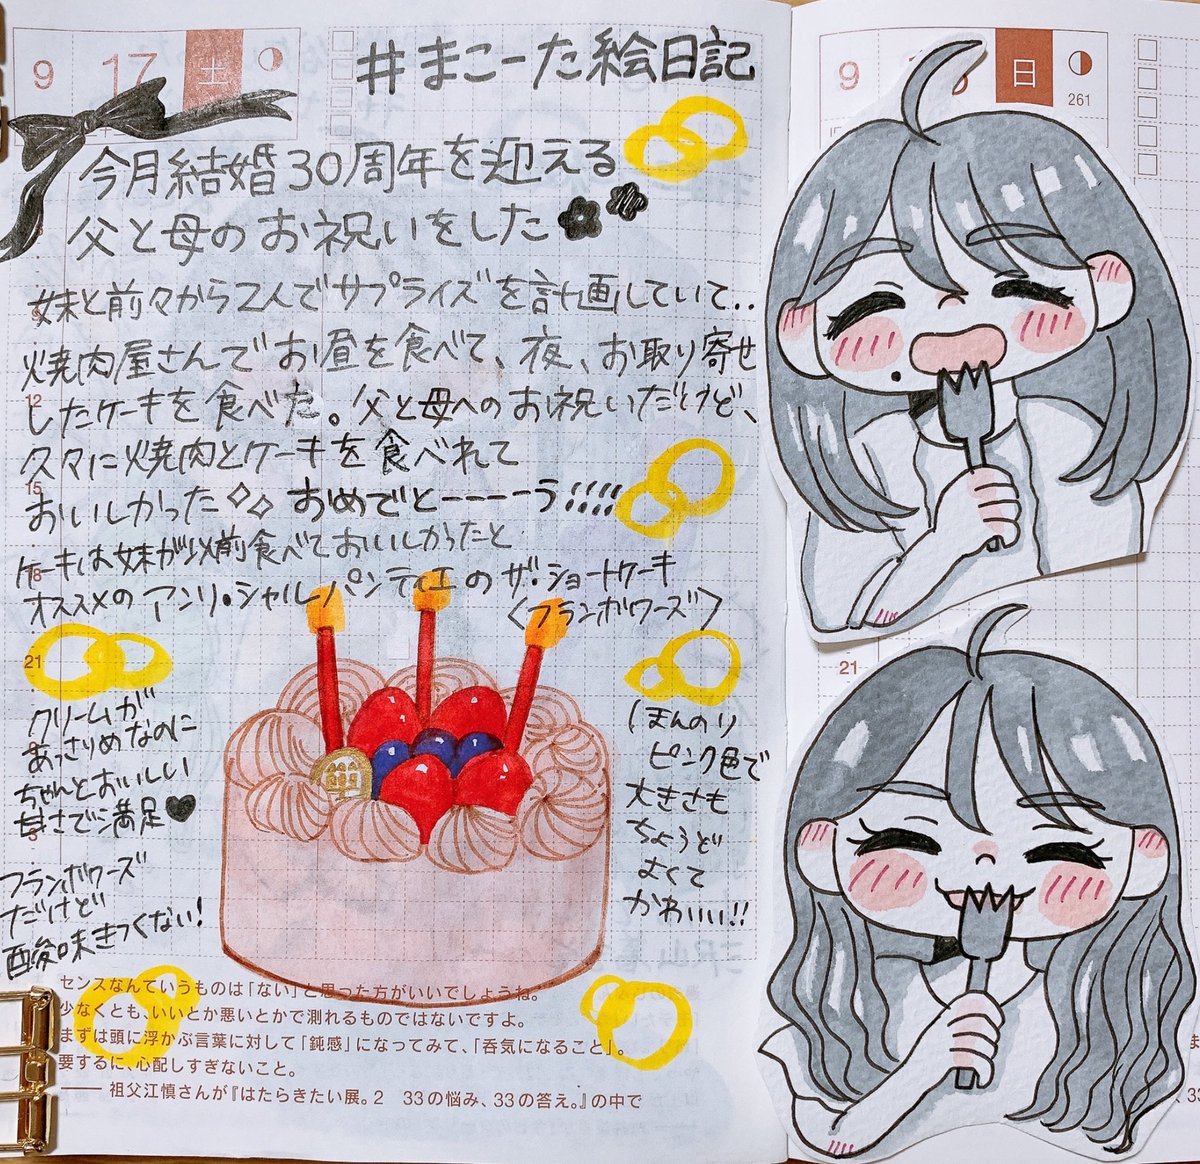 9 17 土
#まこーた絵日記
今月結婚30周年を迎える
父と母のお祝いをした
妹と前々から2人でサプライズを計画していて..
焼肉屋さんでお昼を食べて、夜、お取り寄せ
したケーキを食べた。父と母へのお祝いだけど、
久々に焼肉とケーキを食べれて
おいしかった✧✧ おめでとーーーーう!!!!
ケーキは妹が以前食べておいしかったと
オススメのアンリ・シャルパンティエのザ・ショートケーキ
〈フランボワーズ〉
クリームが
あっさりめなのに
ちゃんとおいしい
甘さで満足♥
フランボワーズ
だけど
酸味きつくない!
ほんのり
ピンク色で
大きさも
ちょうど
よくて
かわいい!!
12
15
18
21
センスなんていうものは「ない」と思った方がいいでしょうね。
少なくとも、いいとか悪いとかで測れるものではないですよ。
まずは頭に浮かぶ言葉に対して「鈍感」になってみて、「呑気になること」。
要するに、心配しすぎないこと。
── 祖父江慎さんが『はたらきたい展。2 33の悩み、33の答え。』の中で
9 日
261
21